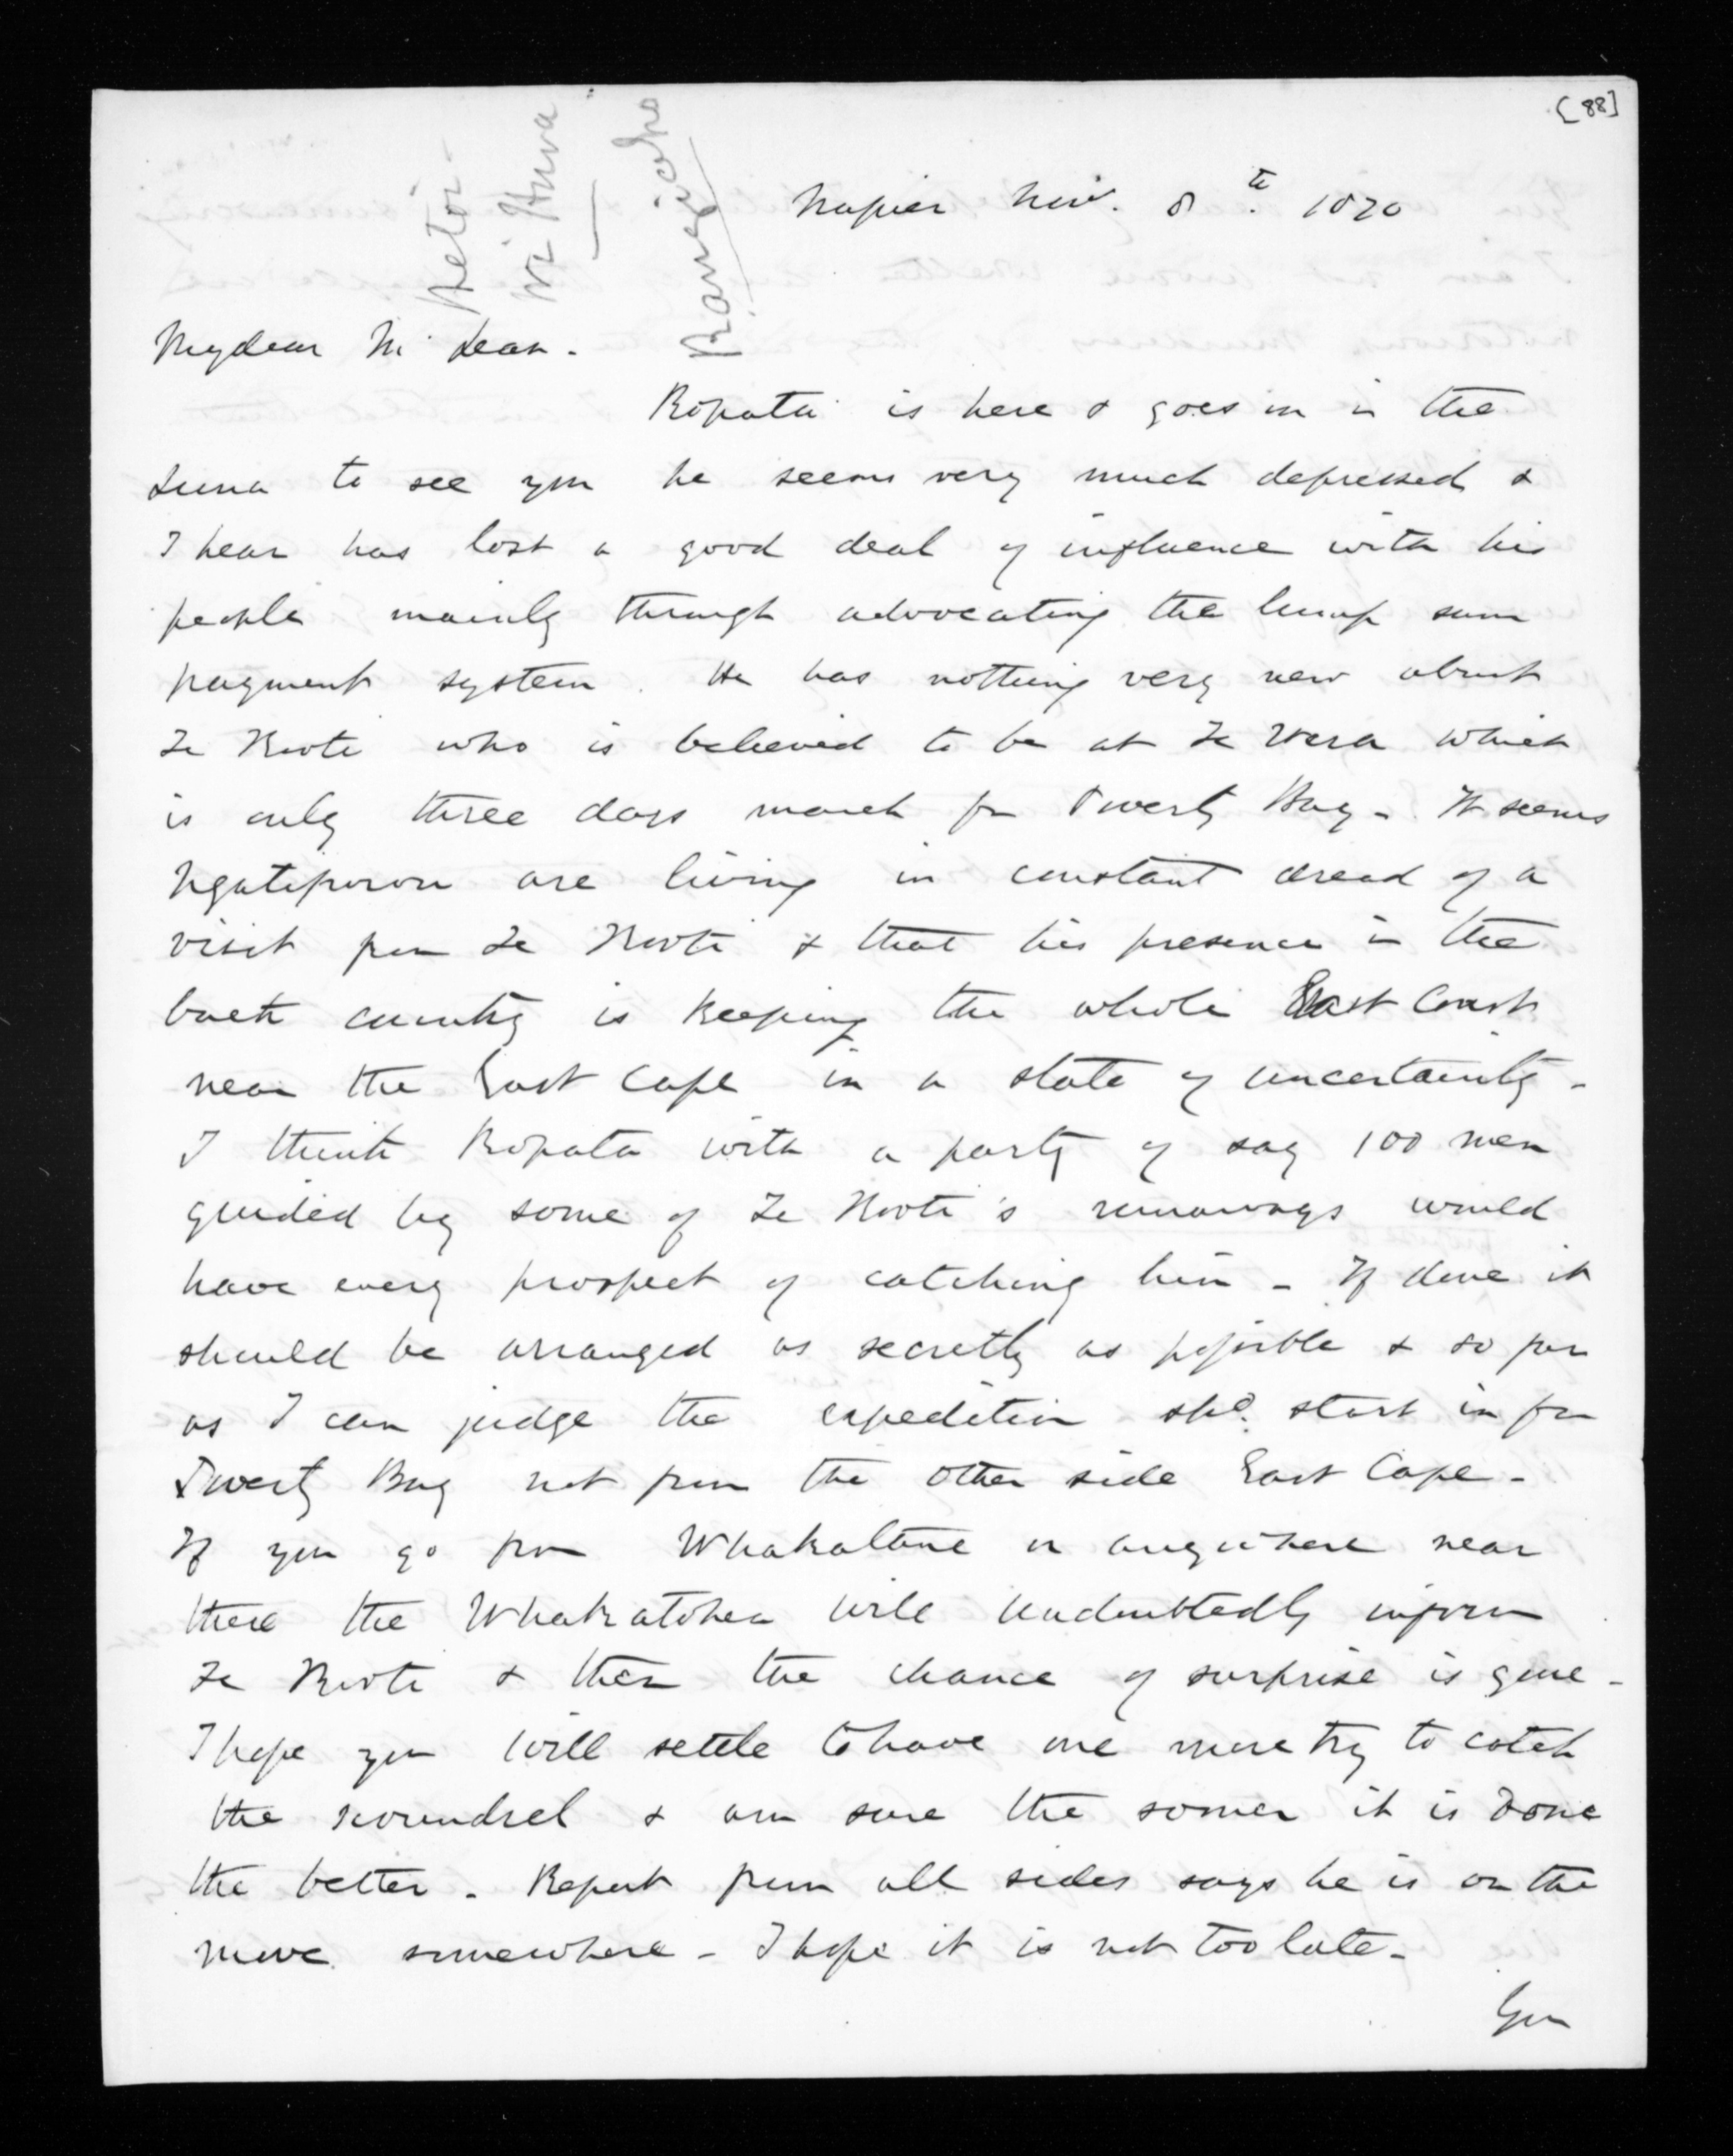 [88]
Napier Nov. 8th. 1870
Petoi -
Wi Huna
Mydear McLean -
Ropata is here & goes in in the
Luna to see you he seems very much depressed &
I hear has lost a good deal of influence with his
people mainly through advocating the lump sum
payment system. He has nothing very new about
Te Kooti who is believed to be at Te Wera which
is only three days march fm Poverty Bay - It seems
Ngatiporou are living in constant dread of a
visit from Te Kooti & that his presence in the
back country is keeping the whole East Coast
near the East Cape in a state of uncertainty -
I think Ropata with a party of say 100 men
guided by some of Te Kooti's runaways would
have every prospect of catching him - If done it
should be arranged as secretly as possible & so far
as I can judge the expedition shd. start in fm
Poverty Bay not from the other side East Cape -
If you go from Whakatane or anywhere near
there the Whakatohea will undoubtedly inform
Te Kooti & then the chance of surprise is gone -
I hope you will settle to have one more try to catch
the scoundrel & am sure the sooner it is done
the better - Report from all sides says he is on the
move somewhere - I hope it is not too late -
You